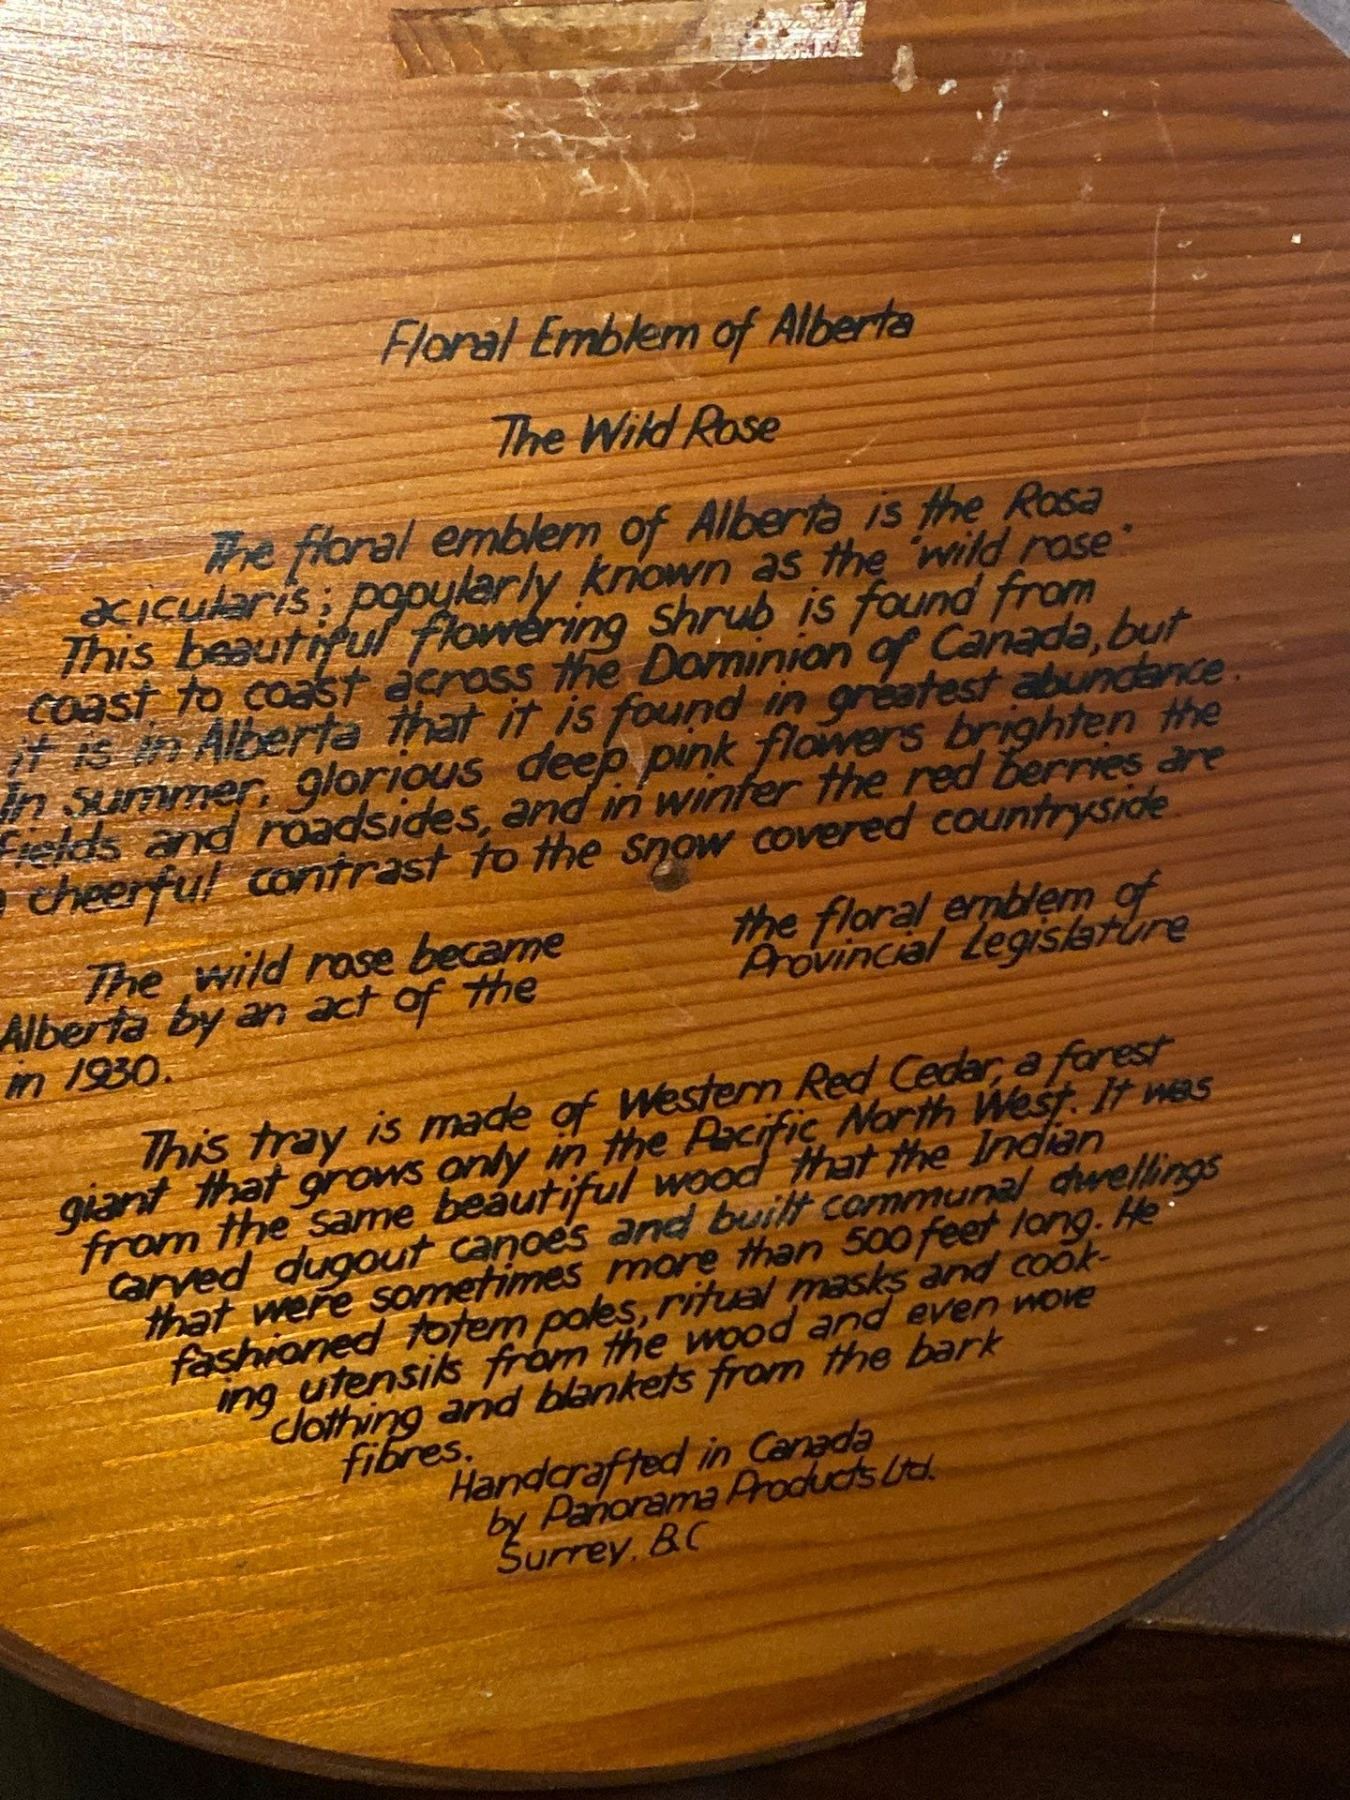 Floral Emblem of Alberta
The Wild Rose
The floral emblem of Alberta is the Rosa
acicularis; popularly known as the "wild rose"
This beautiful flowering shrub is found from
coast to coast across the Dominion of Canada, but
it is in Alberta that it is found in greatest abundance.
In summer, glorious deep pink flowers brighten the
fields and roadsides, and in winter the red berries are
a cheerful contrast to the snow covered countryside.
The wild rose became the floral emblem of
Alberta by an act of the Provincial Legislature
in 1930.
This tray is made of Western Red Cedar, a forest
giant that grows only in the Pacific North West. It was
from the same beautiful wood that the Indian
carved dugout canoes and built communal dwellings
that were sometimes more than 500 feet long. He
fashioned totem poles, ritual masks and cook-
ing utensils from the wood and even wove
clothing and blankets from the bark
fibres.
Handcrafted in Canada
by Panorama Products Ltd.
Surrey, B.C